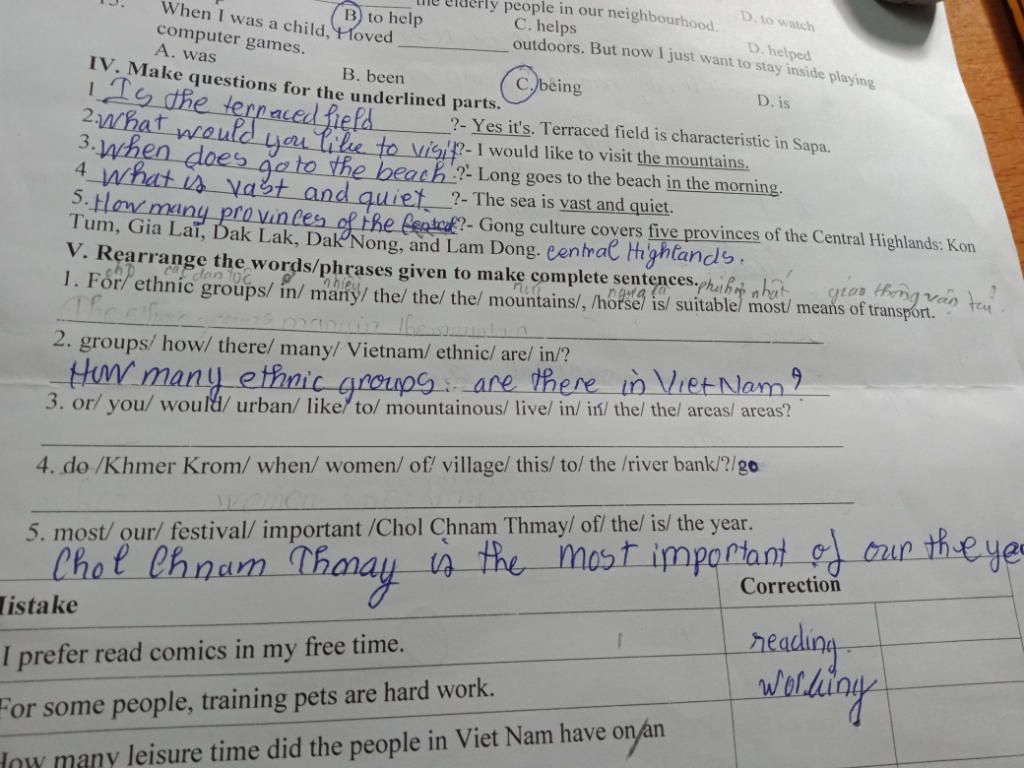 the elderly people in our neighbourhood.
D. to watch
B) to help
C. helps
D. helped
When I was a child, I loved __________ outdoors. But now I just want to stay inside playing
computer games.
A. was
B. been
C. being
D. is
IV. Make questions for the underlined parts.
1 Is the terraced field ?- Yes it's. Terraced field is characteristic in Sapa.
2. What would you like to visit?- I would like to visit the mountains.
3. When does go to the beach ?- Long goes to the beach in the morning.
4 What is vast and quiet ?- The sea is vast and quiet.
5. How many provinces of the ?- Gong culture covers five provinces of the Central Highlands: Kon
Tum, Gia Lai, Dak Lak, Dak Nong, and Lam Dong. central Highlands.
V. Rearrange the words/phrases given to make complete sentences. phù hợp nhất
giao thông vận tải
1. For/ ethnic groups/ in/ many/ the/ the/ the/ mountains/, /horse/ is/ suitable/ most/ means of transport.
2. groups/ how/ there/ many/ Vietnam/ ethnic/ are/ in/?
How many ethnic groups are there in Viet Nam?
3. or/ you/ would/ urban/ like/ to/ mountainous/ live/ in/ in/ the/ the/ areas/ areas?
4. do /Khmer Krom/ when/ women/ of/ village/ this/ to/ the /river bank/?/go
women
5. most/ our/ festival/ important /Chol Chnam Thmay/ of/ the/ is/ the year.
Chol Chnam Thmay is the most important of our the
Mistake
Correction
I prefer read comics in my free time.
reading.
For some people, training pets are hard work.
working
How many leisure time did the people in Viet Nam have on/an